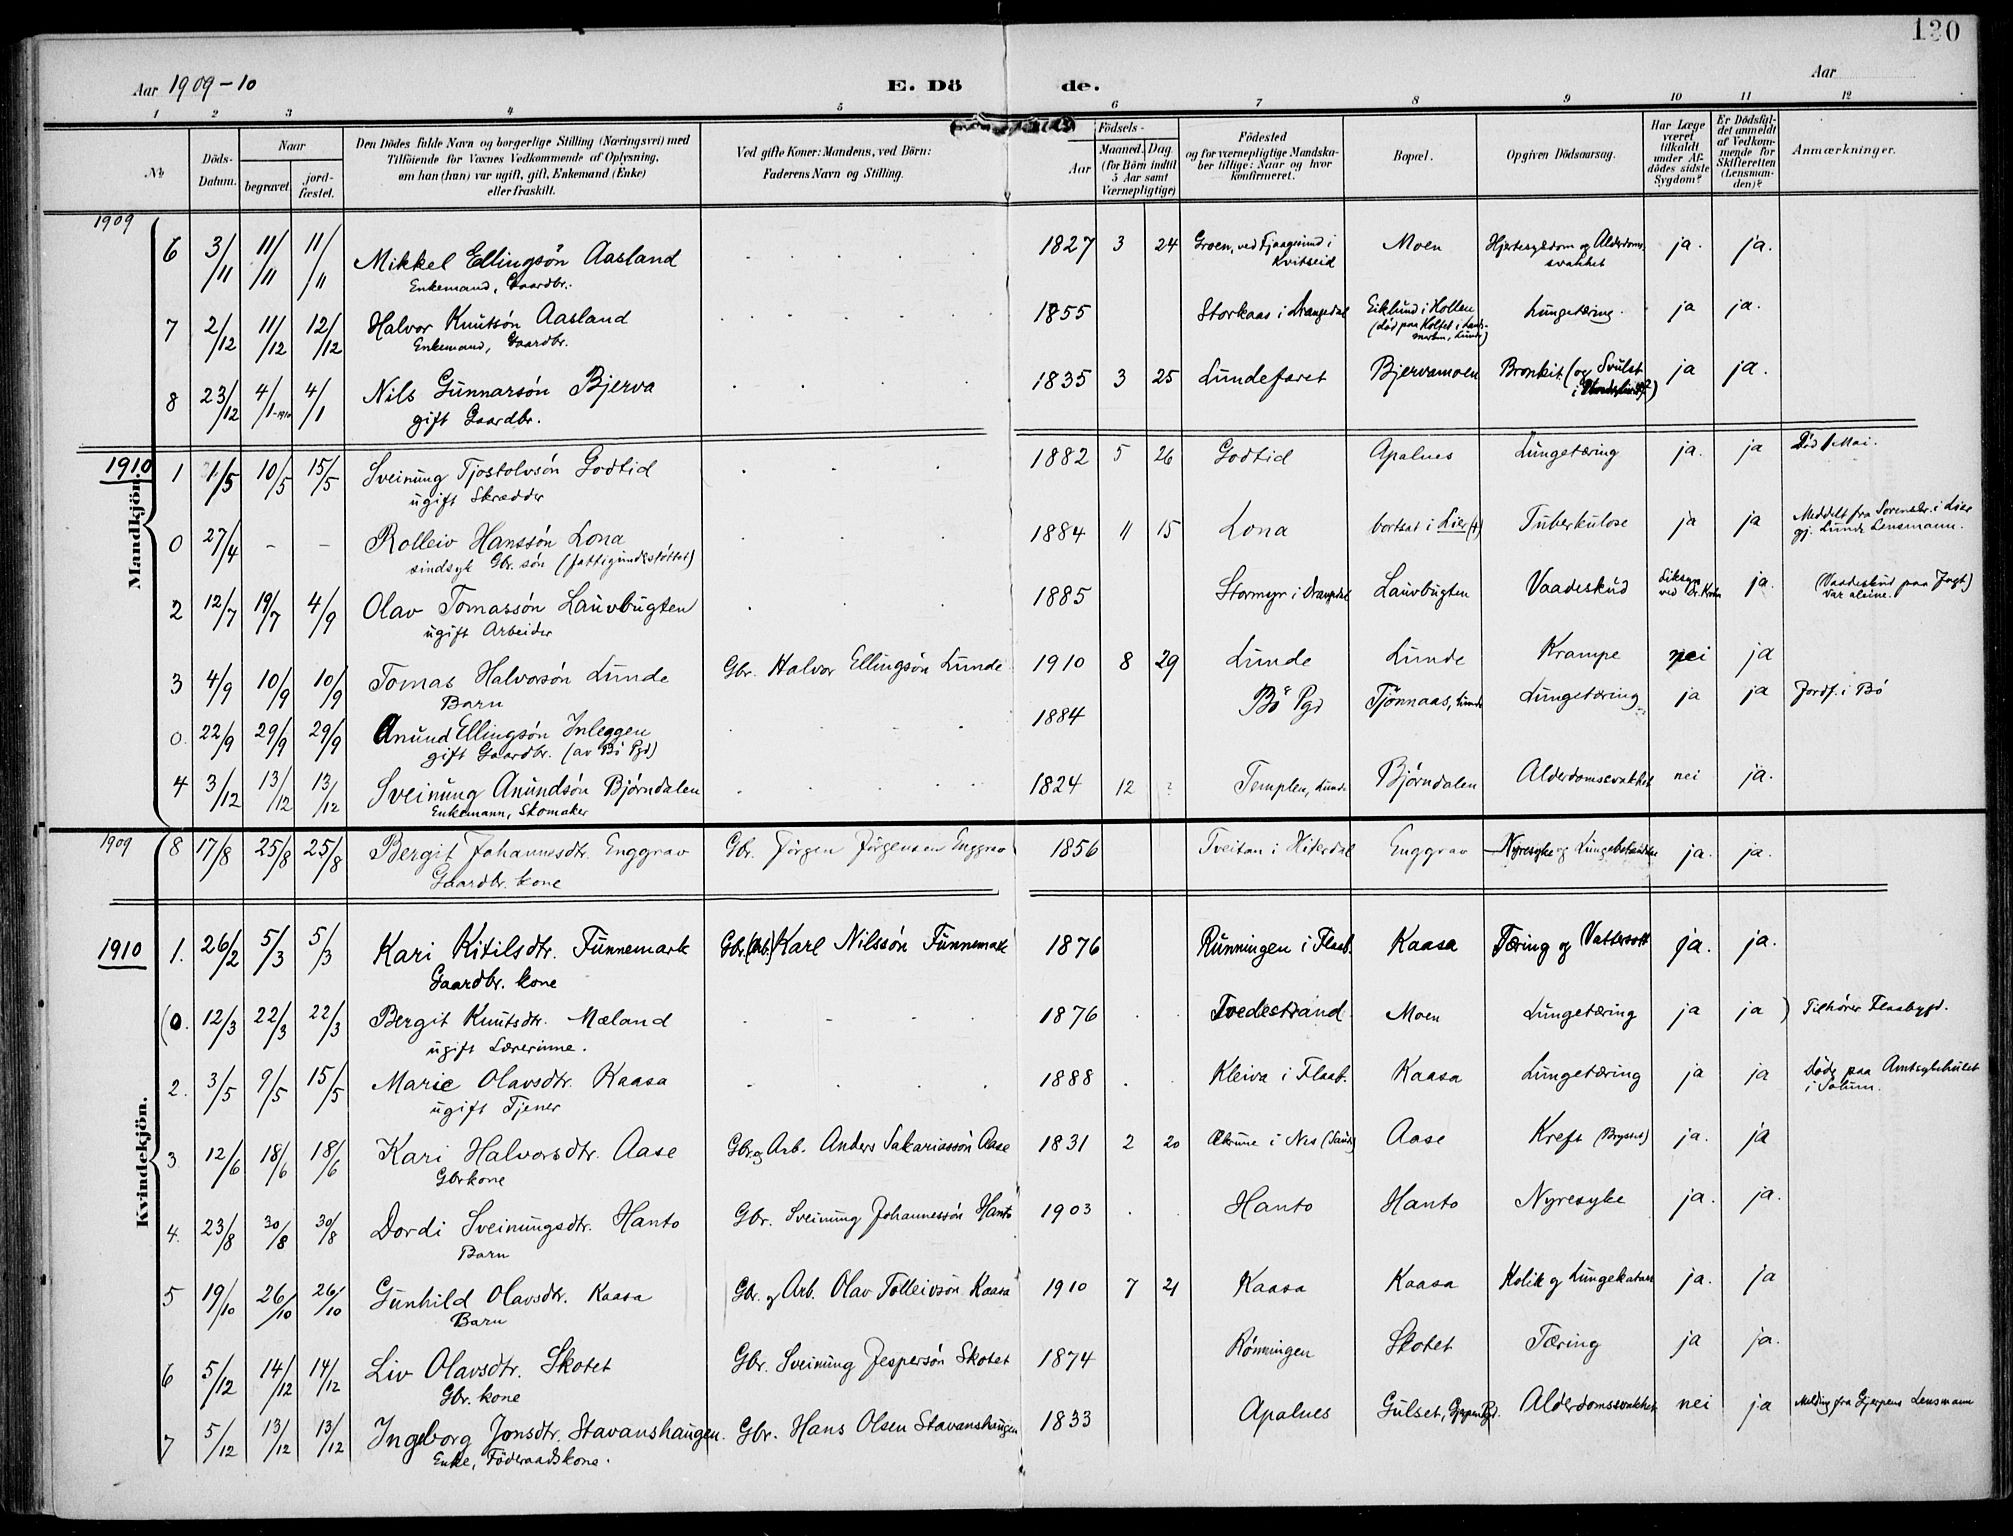 130
Aar 1909-10 E. Dö de. Aar
1 2 3 4 5 6 7 8 9 10 11 12
No
Döds-Datum.
Naar
begravet.
jord-fæstet.
Den Dödes fulde Navn og borgerlige Stilling (Næringsvei) med
Tilföiende for Voxnes Vedkommende af Oplysning,
om han (hun) var ugift, gift, Enkemand (Enke)
eller fraskilt.
Ved gifte Koner: Mandens, ved Börn:
Faderens Navn og Stilling.
Födsels-
Aar
Maaned. Dag.
(for Börn indtil
5 Aar samt
Værnepligtige)
Födested
og for værnepligtige Mandska-
ber tillige: Naar og hvor
konfirmeret.
Bopæl.
Opgiven Dödsaarsag.
Har Læge
været
tilkaldt
under Af-
dödes sidste
Sygdom?
Er Dödsfal-
det anmeldt
af Vedkom-
mende for
Skifteretten
(Lensman-
den)?
Anmærkninger.
Mandkjön.
1909
6 3/11 11/11 11/11 Mikkel Ellingsön Aasland 1827 3 24 Groen, ved Fjaagesund i Moen Hjertesygdom og Alderdoms ja. ja.
Enkemand, Gaardbr. Kvitseid svakhet
7 2/12 11/12 12/12 Halvor Knutsön Aasland 1855 Storkaas i Drangedal Eiklund i Hollen Lungetæring. ja ja.
Enkemand, Gaardbr.
8 23/12 4/1-1910 4/1 Nils Gunnarsön Bjerva 1835 3 25 Lundefaret Bjervamoen Bronkit (og Svulst ja ja.
gift Gaardbr.
1910
1 1/5 10/5 15/5 Sveinung Tjostolvsön Godtid 1882 5 26 Godtid Apalnes Lungetæring ja. ja Död 1 Mai.
ugift Skrædder
0 27/4 - - Rolleiv Hanssön Lona 1884 11 15 Lona bortsat i Lier (†) Tuberkulose ja ja Meddelt fra Sorenskr. i Lier
sindsyk Gbr. sön (fattigunderstöttet) gj. Lunde Lensmann.
2 12/7 19/7 4/9 Olav Tomassön Lauvbugten 1885 Stormyr i Drangedal Lauvbugten Vaadeskud Liksyn ja. (Vaadeskud paa Jagt)
ugift Arbeider ved Dr. var aleine.
3 4/9 10/9 10/9 Tomas Halvorsön Lunde Gbr. Halvor Ellingsön Lunde 1910 8 29 Lunde Lunde Krampe nei ja
Barn
0. 22/9 29/9 29/9 Anund Ellingsön Inleggen 1884 Bö Pgd Tjönnaas, Lunde Lungetæring ja ja Jordf. i Bö
gift Gaardbr. (av Bö Pgd)
4 3/12 13/12 13/12 Sveinung Anundsön Björndalen 1824 12 ? Templen, Lunde Björndalen Alderdomssvakhet nei ja.
Enkemann, Skomaker
Kvindekjön.
1909
8 17/8 25/8 25/8 Bergit Johannesdtr. Enggrav Gbr. Jörgen Jörgensen Enggrav 1856 Tveitan i Hiterdal Enggrav Nyresyke og ja. ja.
Gaardbr. kone
1910
1. 26/2 5/3 5/3 Kari Kitilsdtr. Funnemark Gbr. (Arb.) Karl Nilssön Funnemark 1876 Runningen i Flaab. Kaasa Tæring og Vattersott ja. ja.
Gaardbr. kone
(0. 12/3 22/3 22/3 Bergit Knutsdtr. Mæland 1876 Tvedestrand Moen Lungetæring ja ja ) Tilhörer Flaabygd.
ugift Lærerinne.
2. 3/5 9/5 15/5 Marie Olavsdtr. Kaasa 1888 Kleiva i Flaab. Kaasa Lungetæring ja ja Döde paa Amtssykehuset
ugift Tjener i Solum.
3 12/6 18/6 18/6 Kari Halvorsdtr. Aase Gbr. og Arb. Anders Sakariassön Aase 1831 2 20 i Nes (Sauh.) Aase Kreft (Brystet) ja. ja
Gbrkone
4. 23/8 30/8 30/8 Dordi Sveinungsdtr. Hanto Gbr. Sveinung Johannessön Hanto 1903 Hanto Hanto Nyresyke ja. ja.
Barn
5 19/10 26/10 26/10 Gunhild Olavsdtr. Kaasa Gbr. og Arb. Olav Tolleivsön Kaasa 1910 7 21 Kaasa Kaasa Kolik og Lungekatarr ja. ja
Barn
6 5/12 14/12 14/12 Liv Olavsdtr. Skotet Gbr. Sveinung Jespersön Skotet 1874 Rönningen Skotet Tæring ja ja.
Gbr. kone
7 5/12 13/12 13/12 Ingeborg Jonsdtr. Stavanshaugen. Gbr. Hans Olsen Stavanshaugen 1833 Apalnes Gulset, Gjerpen Pgd. Alderdomssvakhet nei ja Melding fra Gjerpens Lensmann
Enke, Föderaadskone.